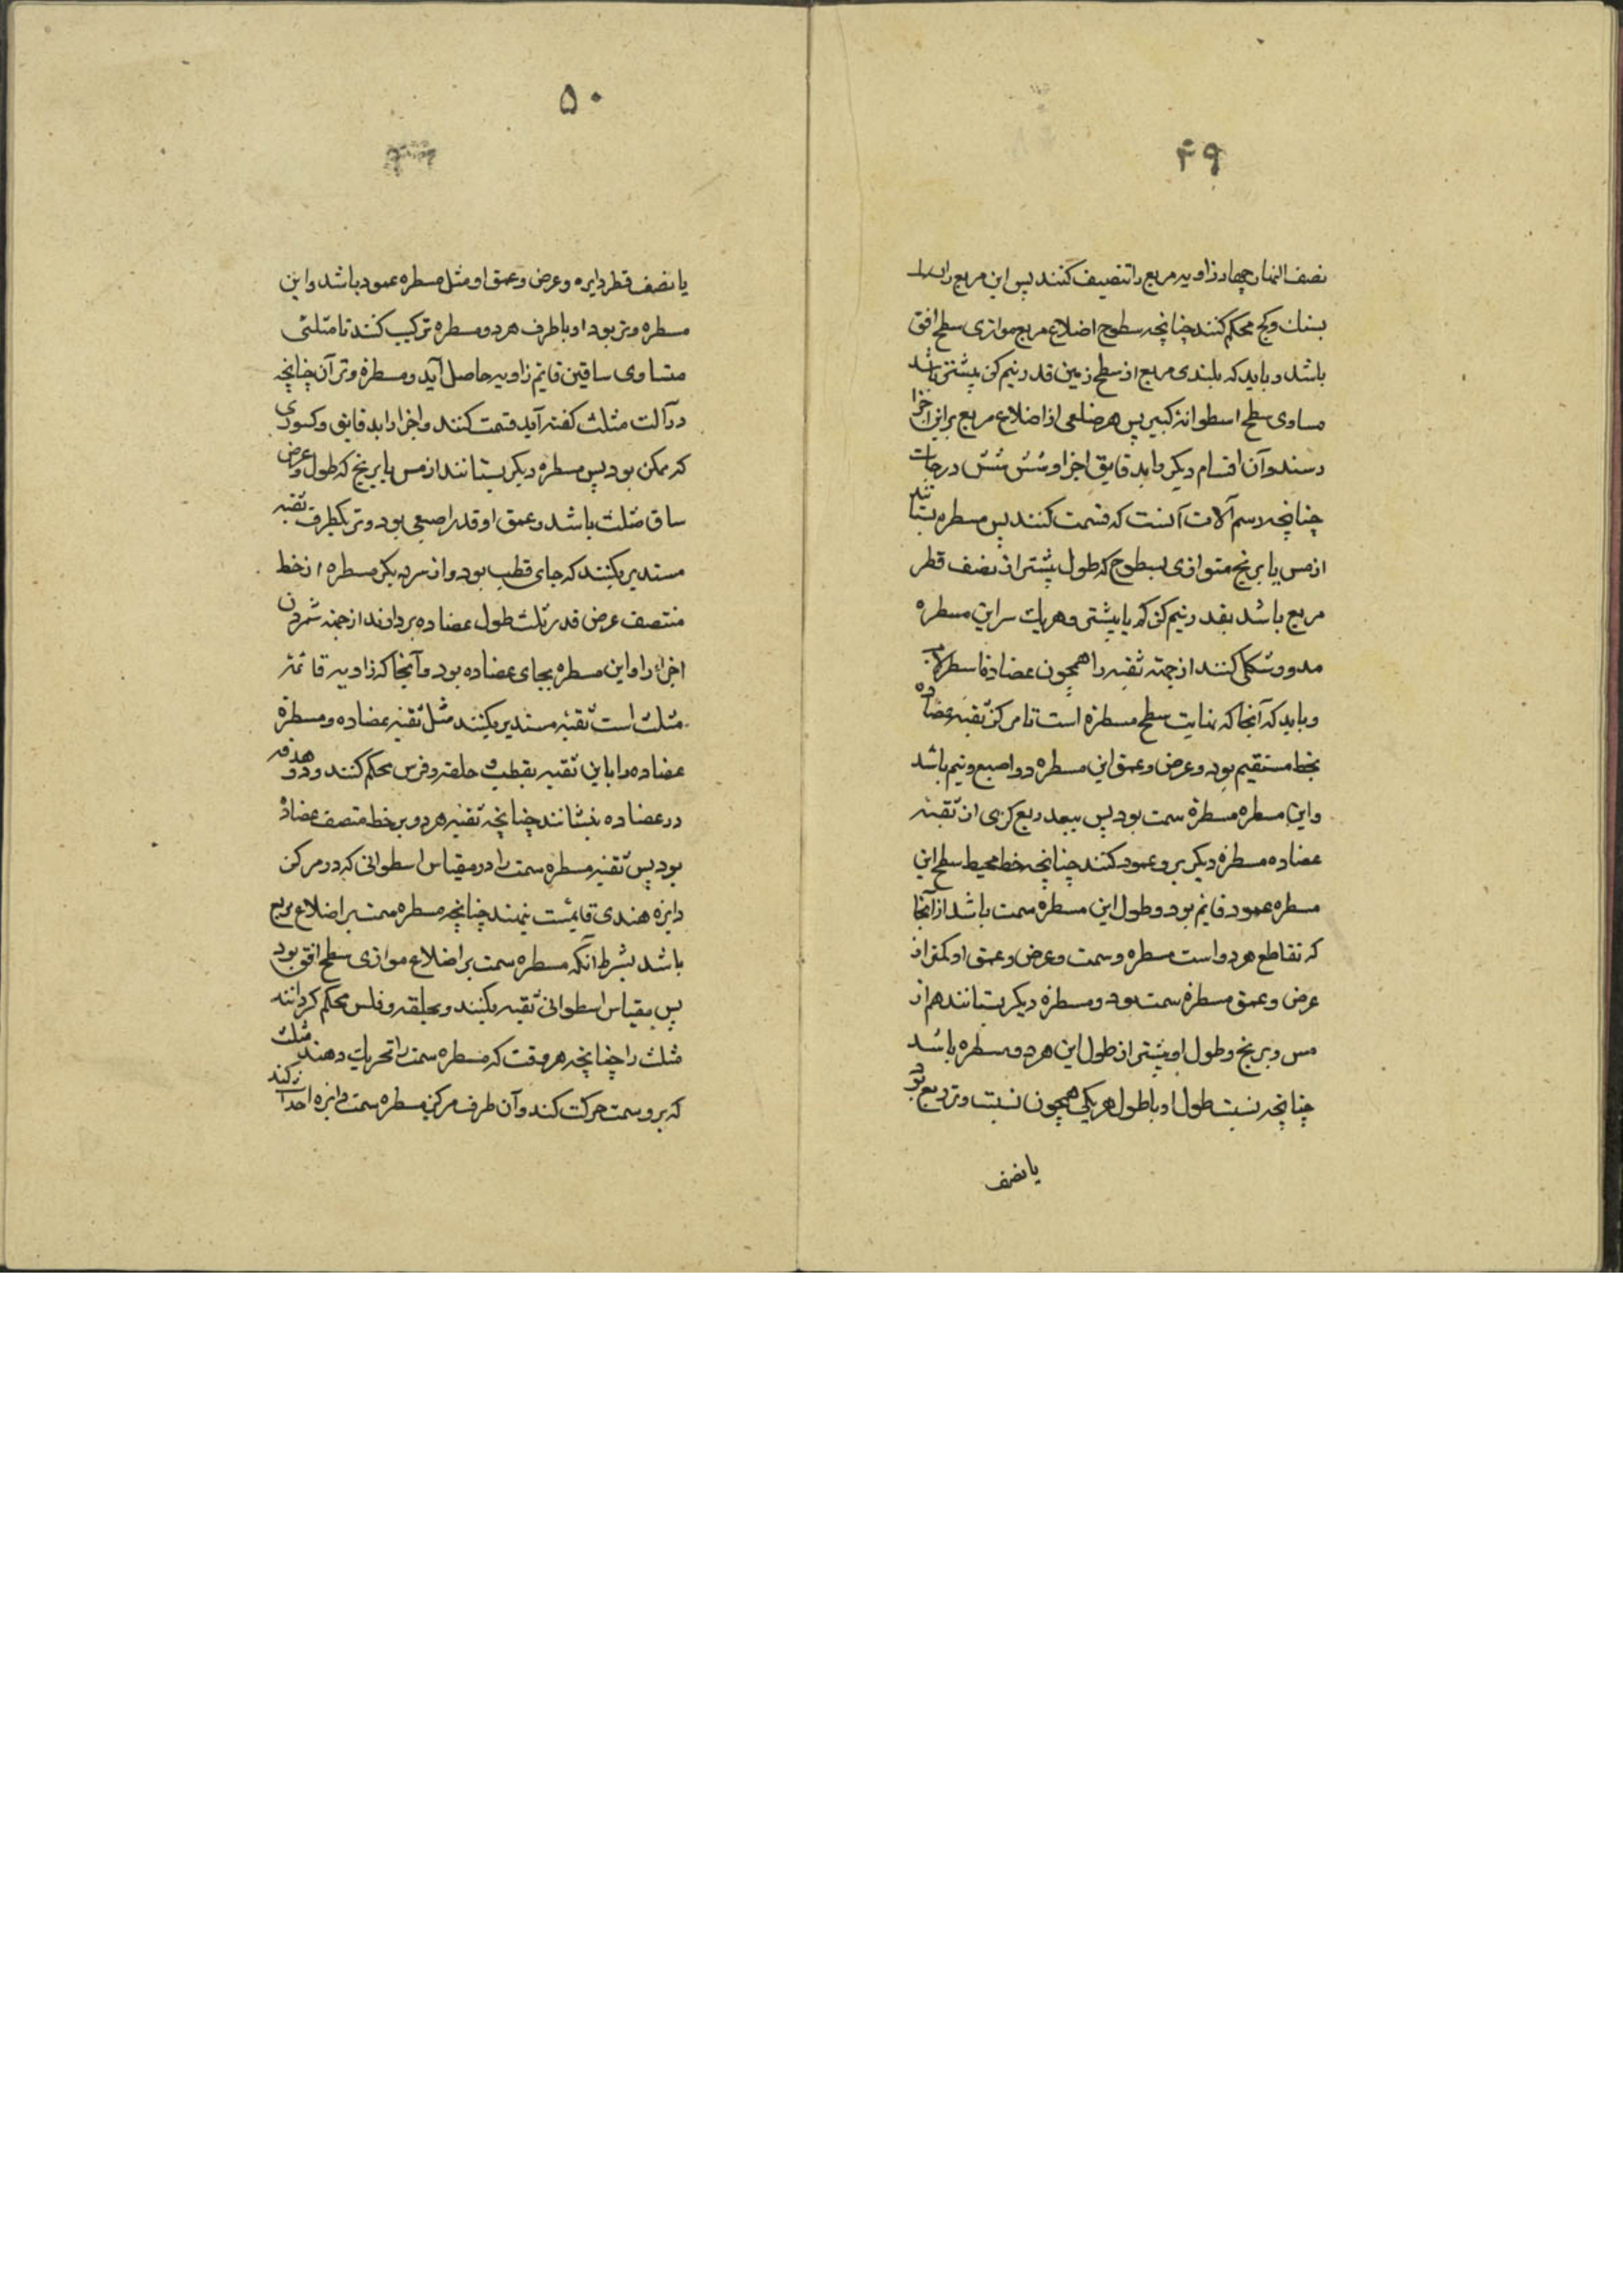 ۴۹
نصف النهار چهار زاویه مربع را تنصیف کنند پس این مربع را
بسنك وکج محکم کنند چنانچه سطوح اضلاع مربع موازی سطح افق
باشد و باید که بلندی مربع از سطح زمین قدر نیم کز بیشتر باشد
مساوی سطح اسطوانۀ کبیر پس هر ضلعی از اضلاع مربع براین اجزا
رسند وآن اقسام دیکر باید قایق اجزا و شش شش درجات
چنانچه رسم آلات آنست که قسمت کنند پس مسطره بستانند
از مس یا برنج متوازی سطوح که طول بیشتر از نصف قطر
مربع باشد بقدر نیم کز کم یا بیشتر و هریك سر این مسطره
مدور شکلی کنند از جهته ثقبه را همچون عضادۀ اسطرلاب
و باید که آنجا که نهایت سطح مسطره است تا مرکز ثقبه عضاده
بخط مستقیم بود و عرض و عمق این مسطره دو اصبع و نیم باشد
و این مسطره مسطرۀ سمت بود پس ببعد ربع کزی از ثقبه
عضاده مسطرۀ دیکر برو عمود کنند چنانچه خط محیط سطح این
مسطره عمود قایم بود و طول این مسطره سمت باشد از آنجا
که تقاطع هر دو است مسطره و سمت و عرض و عمق او کمتر از
عرض و عمق مسطرۀ سمت بود و مسطرۀ دیکر بستانند هم از
مس و برنج و طول او بیشتر از طول این هر دو مسطره باشد
چنانچه نسبت طول او با طول هر یکی همچون نسبت وتر ربع بود
یا نصف
۵۰
یا نصف قطر دایره و عرض و عمق او مثل مسطره عمود باشد و این
مسطره وتر بود او با طرف هر دو مسطره ترکیب کنند تا مثلثی
متساوی ساقین قایم زاویه حاصل آید و مسطرۀ وتر آن چنانچه
در آلت مثلث کفته آید قسمت کنند و اجزا را بدقایق و کسوری
که ممکن بود پس مسطرۀ دیکر بستانند از مس یا برنج که طول و عرض
ساق مثلث باشد و عمق او قدر اصبعی بود و تر بکطرف ثقبه
مستدیر بکنند که جای قطب بود و از سر دیکر مسطره از خط
منتصف عرض قدر ثلث طول عضاده بردارند از جهته شمردن
اجزاء را و این مسطره بجای عضاده بود و آنجا که زاویه قائمۀ
مثلث است ثقبه مستدیر بکنند مثل ثقبه عضاده و مسطرۀ
عضاده را با این ثقبه بقطب و حلقه و فرس محکم کنند و دو هدفه
در عضاده بنشانند چنانچه ثقبه هر دو بر خط منتصف عضاده
بود پس ثقبه مسطره سمت را در مقیاس اسطوانی که در مرکز
دایره هندی قایمست نهند چنانچه مسطره سمت بر اضلاع مربع
باشد بشرط آنکه مسطره سمت بر اضلاع موازی سطح افق بود
پس مقیاس اسطوانی ثقبه بکنند و بحلقه و فلس محکم کردانند
مثلث را چنانچه هر وقت که مسطره سمت را تحریك دهند مثلث
که برو سمت حرکت کند وآن طرف مرکز مسطره سمت دایره احداث کند